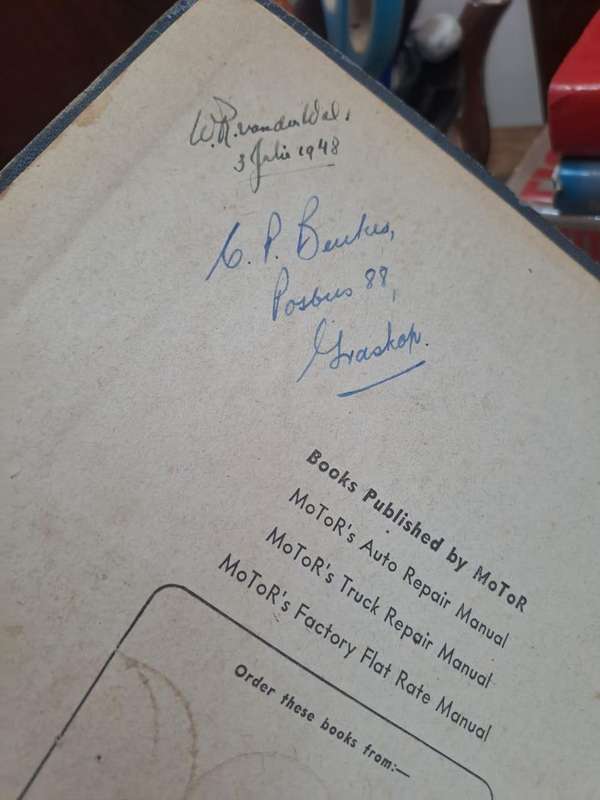 W.R. van der Wal.
3 Julie 1948
C. P. Beukes,
Posbus 88,
Graskop.
Books Published by MoToR
MoToR's Auto Repair Manual
MoToR's Truck Repair Manual
MoToR's Factory Flat Rate Manual
Order these books from:—